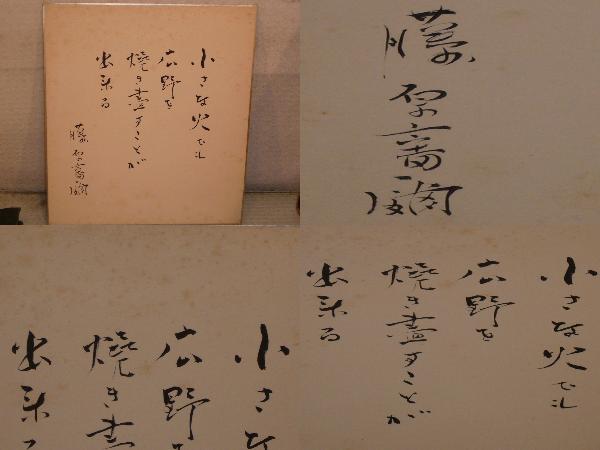 小さな火でも
広野を
焼き盡すことが
出来る
藤原審爾
藤原審爾
小さな
広野
焼き盡
出来
小さな火でも
広野を
焼き盡すことが
出来る